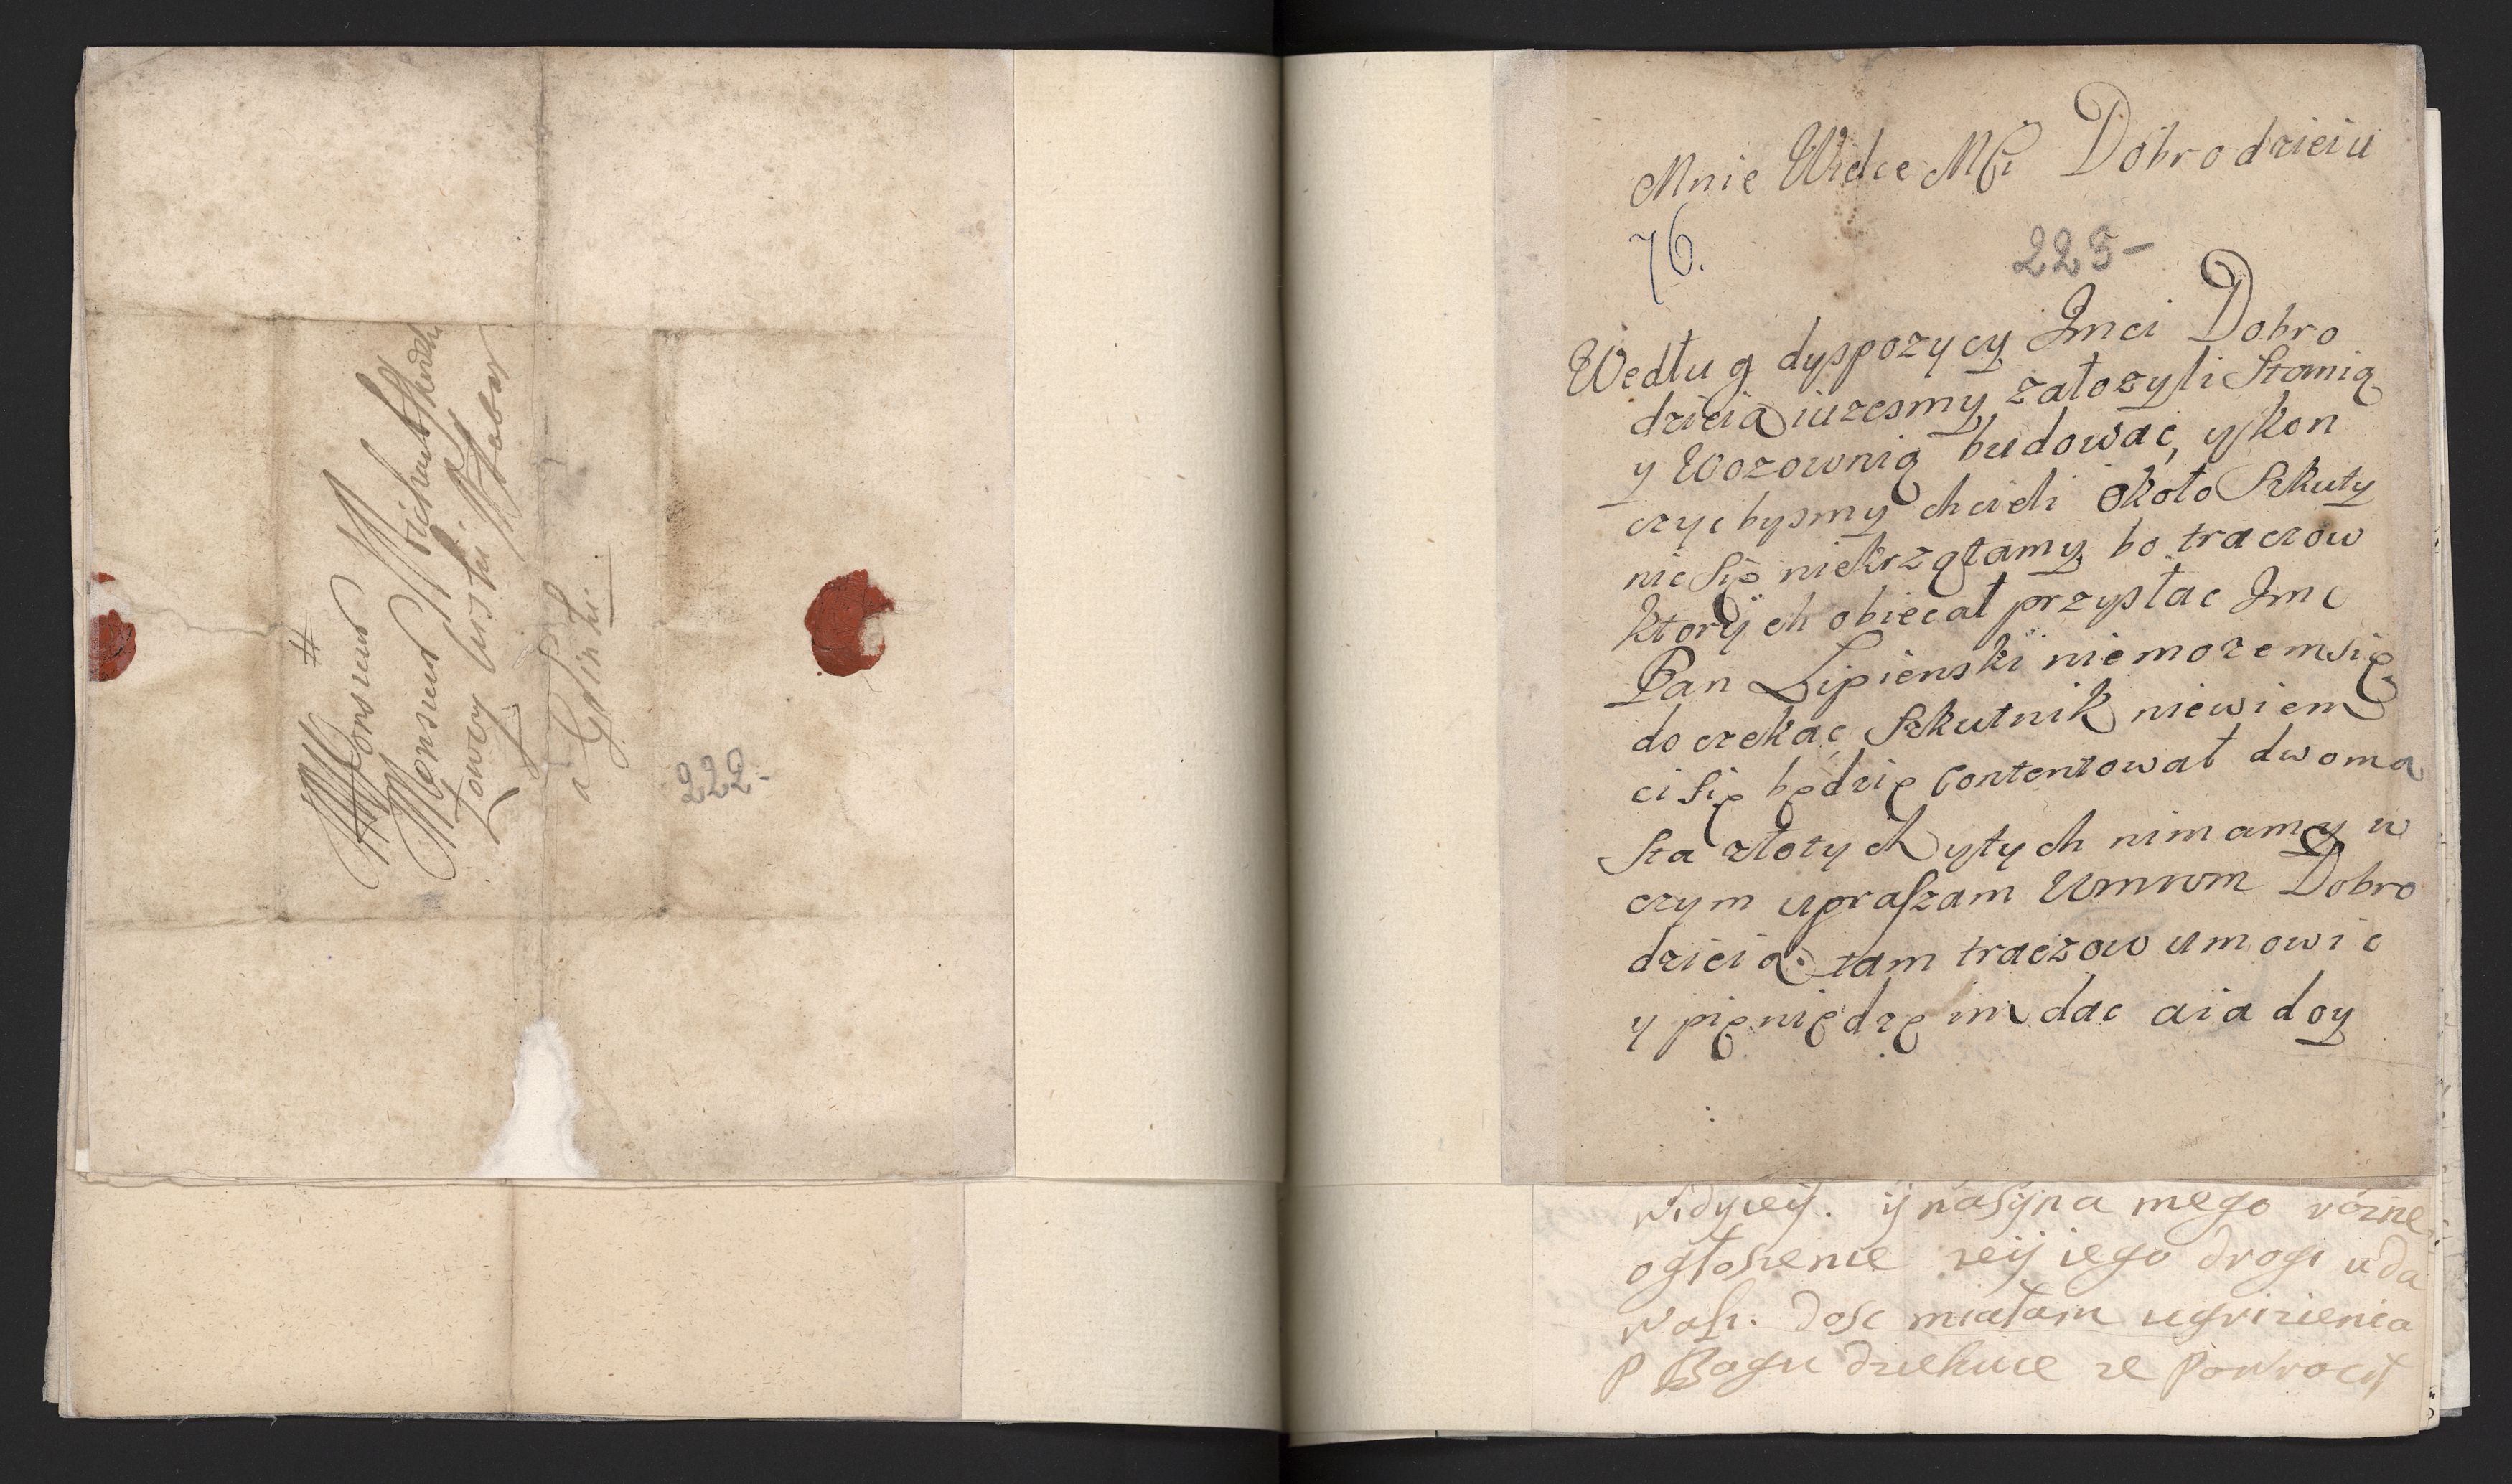 #
Monsieur
Monsieur
Łowczy
a Gdinski
222-
Mnie Wielce Mći Dobrodzieiu
76.
225-
Według dyspozycy Imci Dobro
dzieia iuzesmy załozyli Stanią
y Wozownią budowac, yskon
czyc bysmy chcieli około Szkuty
nic się niekrzątamy bo traczow
ktorych obiecał przysłac Imc
Pan Lipienski niemozemsię
doczekac Szkutnik niewiem
ci się będzię contentował dwoma
sta złotych ytych nimamy w
czym upraszam Wmwm Dobro
dzieia tam traczow umowic
y pięniędzę im dac aia doy
widycy. y nasyna mego rozne
ogłoszenie iego drogi uda
wali. dosc miałam ugrizienia
P Bogu dziekuie ze Powrocił